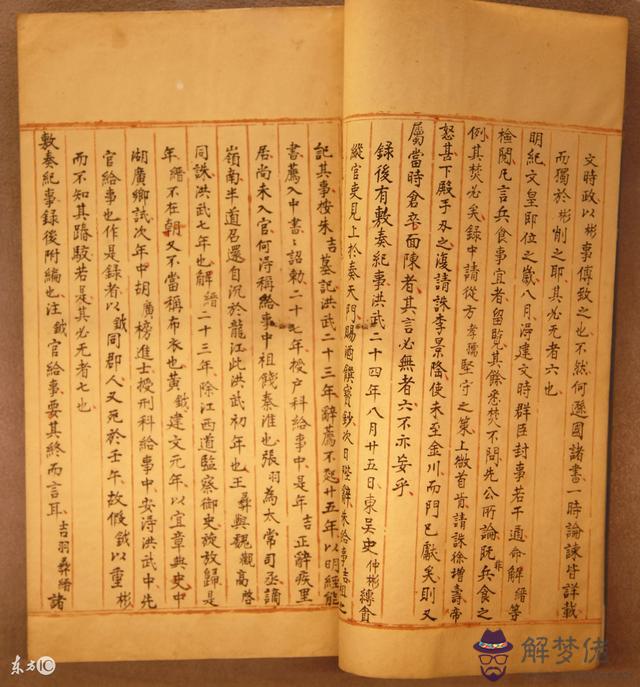 文時政以彬事傅致之也不然何遜國諸書一時論諫皆詳載
而獨於彬削之耶其必无者六也
明紀文皇即位之歲八月淂建文時群臣封事若干通命解縉等
檢閱凡言兵食事宜者留覧其餘悉焚不問先公所論旣非兵食之
例其焚必矣録中請從方孝孺堅守之策上微首肯請誅徐增壽帝
怒甚下殿手刃之復請誅李景隆使未至金川而門已獻矣則又
屬當時倉卒面陳者其言必無者六不亦妄乎
録後有敷奏紀事洪武二十四年八月廿五日東吳史仲彬縛貪
縱官吏見上於奏天門賜酒饌寳鈔次日陛辭朱給事吉祖之
記其事按朱吉墓記洪武二十三年辭薦不起廿五年以明經能
書薦入中書詔勅二十七年授户科給事中是年吉正辭疾里
居尚未入官何淂稱給事中祖餞秦淮也張羽為太常司丞謫
嶺南半道召還自沉於龍江此洪武初年也王彛與魏觀高啓
同誅洪武七年也解縉二十三年除江西道監察御史旋放歸是
年縉不在朝又不當稱布衣也黃鉞建文元年以宜章典史中
湖廣鄉試次年中胡廣榜進士授刑科給事中安淂洪武中先
官給事也作是録者以鉞同郡人又死於壬午故假鉞以重彬
而不知其踳駮若是其必无者七也
敷奏紀事録後附編也注鉞官給事要其終而言耳吉羽彛縉諸
解梦佬
东方IC